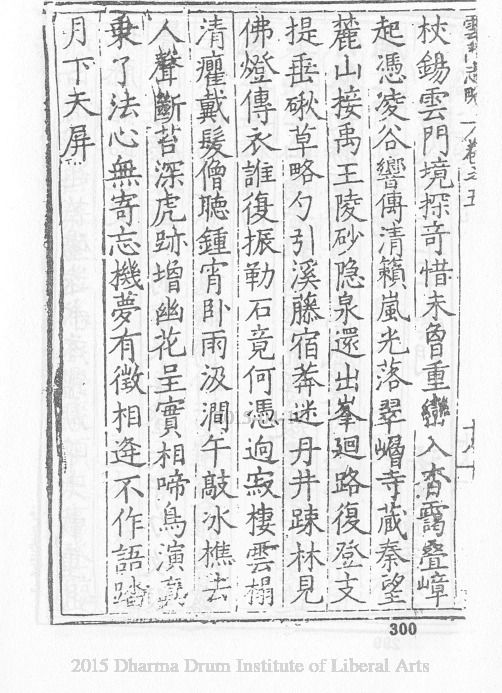 雲門志略 卷之五
杖錫雲門境探奇惜未曾重巒入杳靄叠嶂
起憑凌谷響傳清籟嵐光落翠嶒寺藏秦望
麓山接禹王陵砂隐泉還出峯迴路復登支
提垂碌草略勺引溪藤宿莽迷丹井踈林見
佛燈傳衣誰復振勒石竟何憑逈寂棲雲榻
清癯戴髮僧聽鍾宵卧雨汲澗午敲冰樵去
人聲斷苔深虎跡增幽花呈實相啼鳥演
乗了法心無寄忘機夢有徵相逢不作語踏
月下天屏
300
2015 Dharma Drum Institute of Liberal Arts